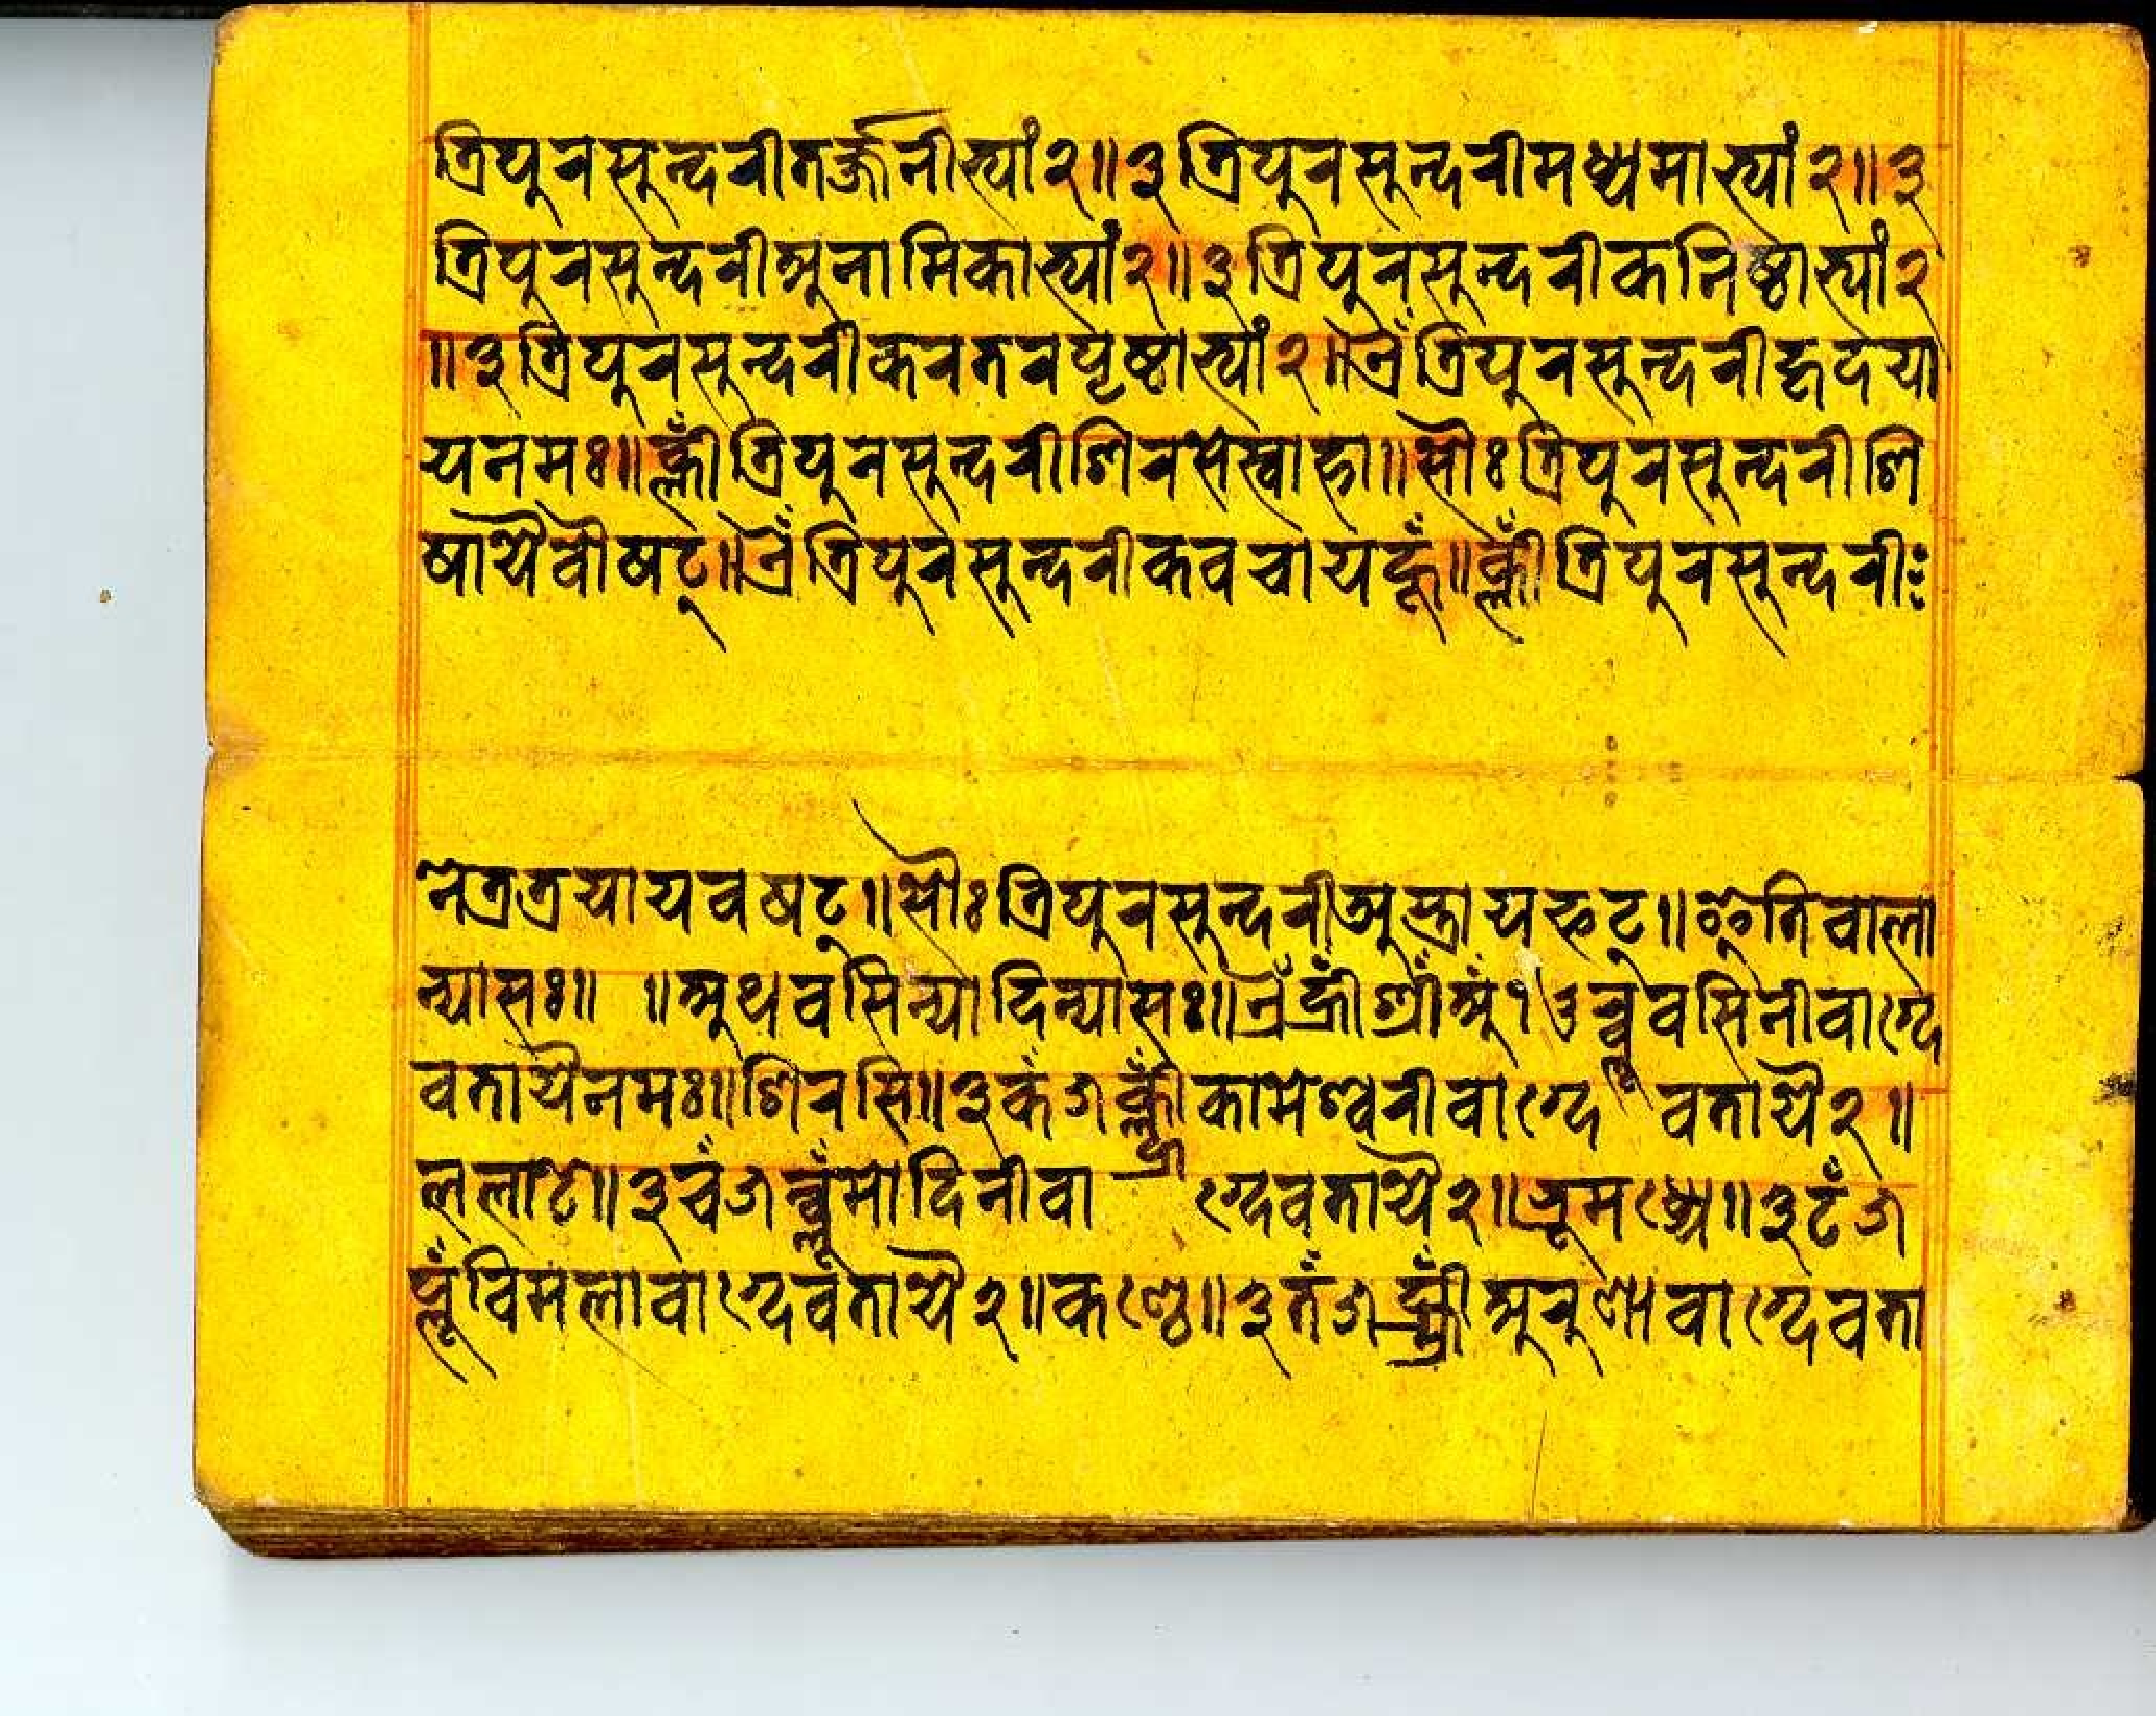 त्रिपुरसुन्दरीतर्ज्जनीभ्यां२॥३त्रिपुरसुन्दरीमध्यमाभ्यां२॥३
त्रिपुरसुन्दरीअनामिकाभ्यां२॥३त्रिपुरसुन्दरीकनिष्ठाभ्यां२
॥३त्रिपुरसुन्दरीकरतरपृष्ठाभ्यां२॥ऐँत्रिपुरसुन्दरीहृदया
यनमः॥क्लीँत्रिपुरसुन्दरीशिरसेस्वाहा॥सौःत्रिपुरसुन्दरीशि
षायैवौषट्॥ऐँत्रिपुरसुन्दरीकवचायहूँ॥क्लीँत्रिपुरसुन्दरी
नेत्रत्रयायवषट्॥सौःत्रिपुरसुन्दरीअस्त्रायफट्॥इतिवाला
न्यासः॥ ॥अथवसिन्यादिन्यासः॥ऐँह्रीँश्रीँअं१७र्ब्लूवसिनीवाग्दे
वतायैनमः॥शिरसि॥३कं५कामेश्वरीवाग्देवतायै२॥
ललाटे॥३चं५मोदिनीवाग्देवतायै२॥भ्रूमध्ये॥३टं५
विमलावाग्देवतायै२॥कण्ठे॥३तं५अरुणावाग्देवता